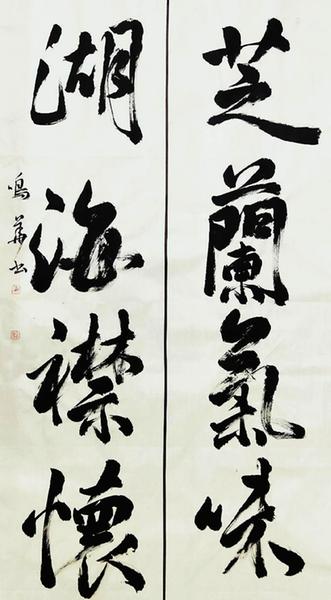 芝蘭氣味
湖海襟懷
鳴華书